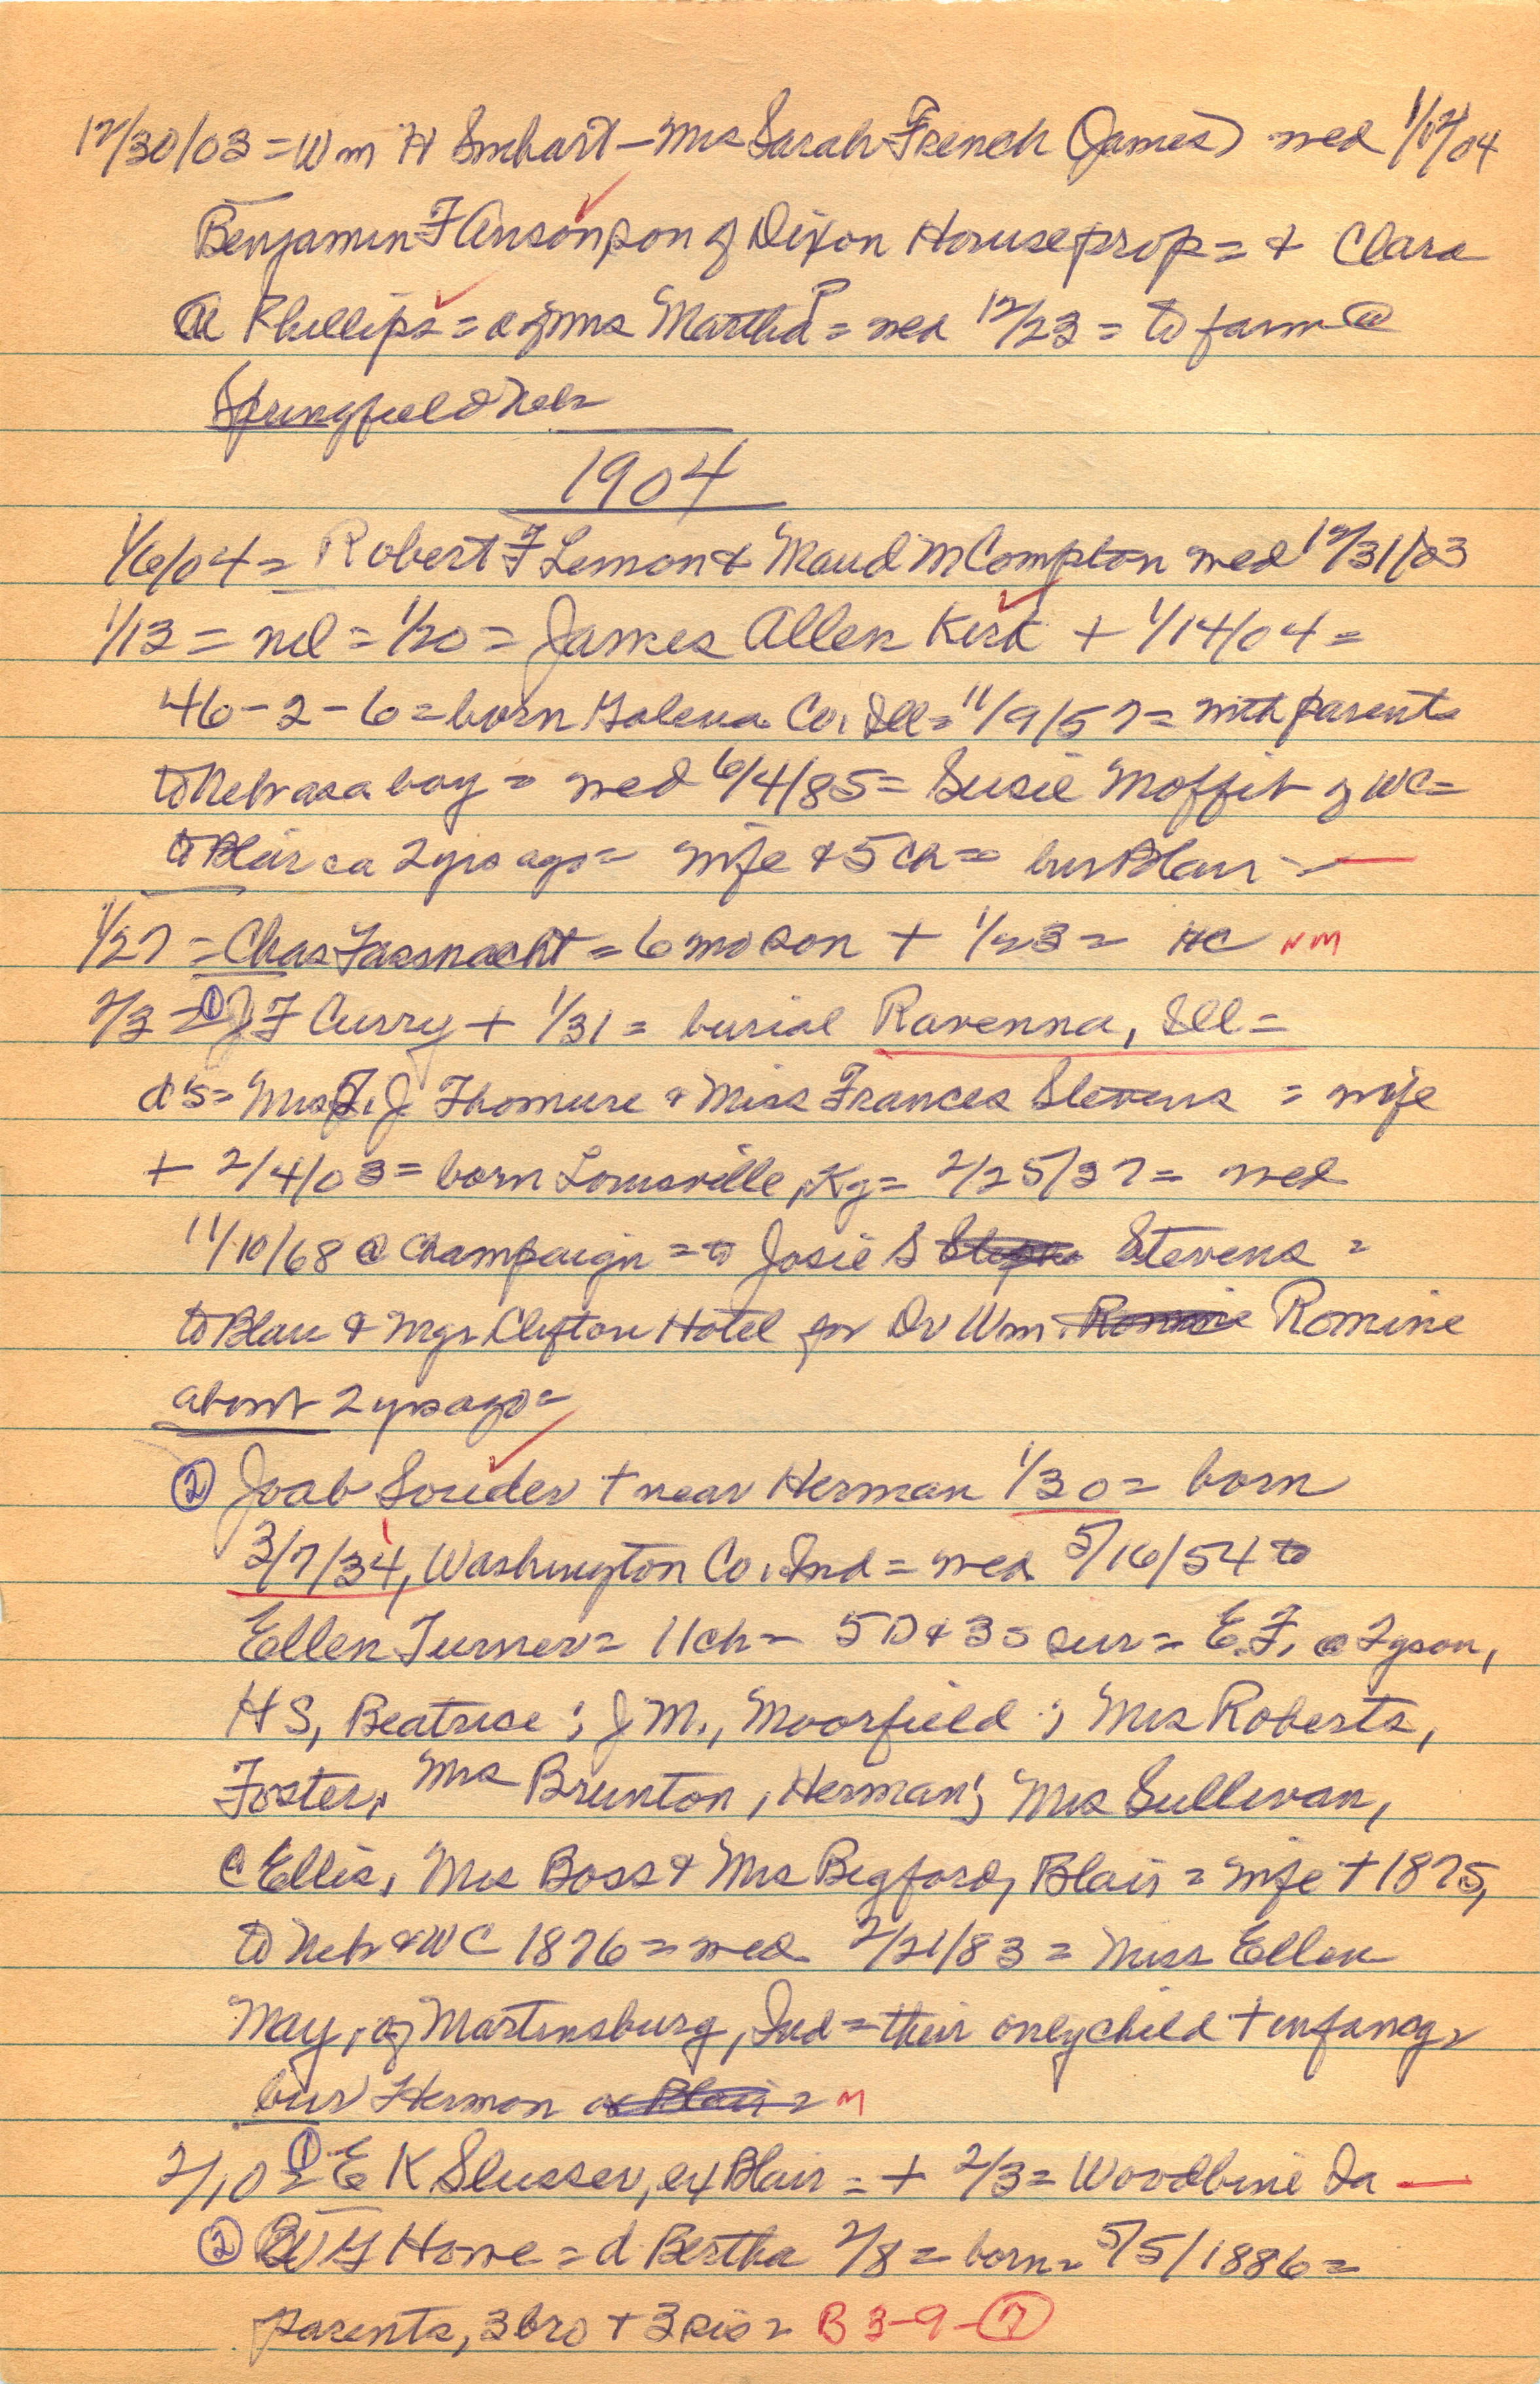 12/30/03 = Wm H Smhart – Mrs Sarah French (James) med 1/02/04
Benjamin F Anson son of Dixon House prop = + Clara
M Phillips = d of Mrs Martha P = med 12/23 = to farm @
Springfield Neb =
1904
1/6/04 = Robert F Lemon & Maud M Compton med 12/31/03
1/13 = nil = 1/20 = James Allen Kirk + 1/14/04 =
46-2-6 = born Galena Co, Ill = 11/9/57 = with parents
to Neb as a boy = med 6/4/85 = Susie Moffit of WC =
to Blair ca 2 yrs ago = wife & 5 ch = bur Blair = —
1/27 = Chas Fassnacht = 6 mo son + 1/23 = HC NM
2/3 = ① J F Curry + 1/31 = burial Ravenna, Ill =
d's = Mrs F. J Thomure & Miss Frances Stevens = wife
+ 2/4/03 = born Louisville, Ky = 2/25/37 = med
11/10/68 @ Champaign = to Josie S Stevens =
to Blair & mgr Clifton Hotel for Dr Wm. Romine Romine
about 2 yrs ago =
② Joab Souder + near Herman 1/30 = born
3/7/34, Washington Co, Ind = med 5/16/54 to
Ellen Turner = 11 ch = 5 D & 3 s sur = E.F. @ Tyson,
H S, Beatrise; J M., Moorfield; Mrs Roberts,
Foster, Mrs Brunton, Herman; Mrs Sullivan,
@ Ellis, Mrs Boss & Mrs Bigford, Blair = wife + 1875,
to Neb & WC 1876 = med 2/21/83 = Miss Ellen
May, of Martinsburg, Ind = their only child + infancy =
bur Herman or Blair = M
2/10 = ① E K Slusser, ex Blair = + 2/3 = Woodbine Ia —
② W G Howe = d Bertha 2/8 = born = 5/5/1886 =
parents, 3 bro + 3 sis = B 3-9-⑦